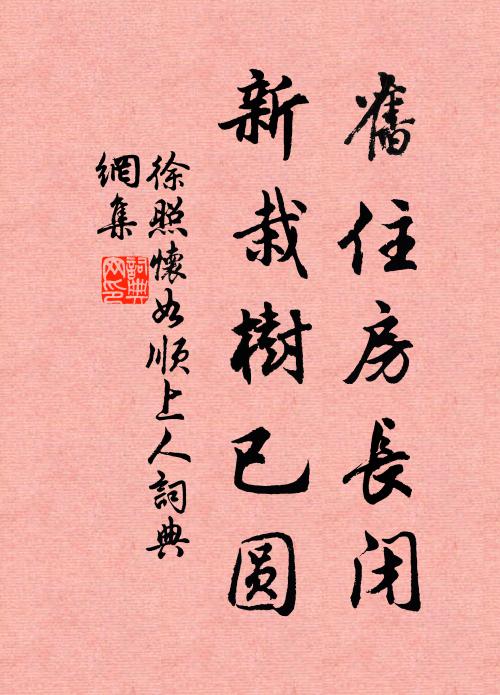 舊住房長闭
新栽樹已圆
徐照懷如順上人詞典
網集
詞典
网印